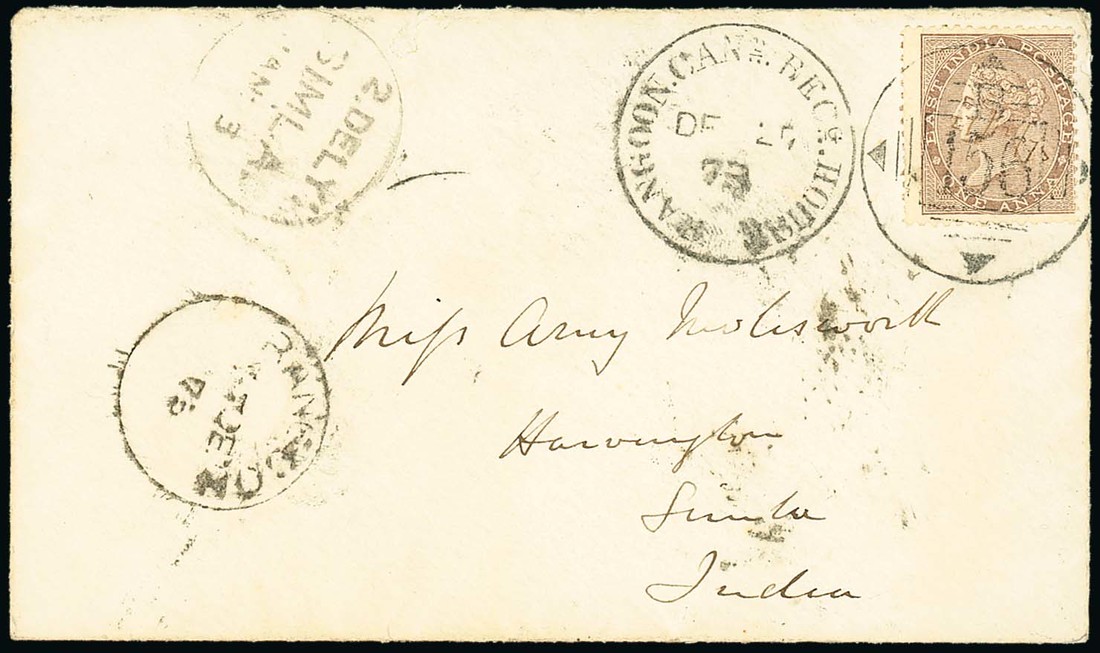 2.DELY.
SIMLA.
JAN. 3
RANGOON.CANT. RECG. HOUSE
DE 25
73
EAST INDIA POSTAGE
ONE ANNA
156
RANGOON
DE
73
Miss Amy Molesworth
Harvington
Simla
India